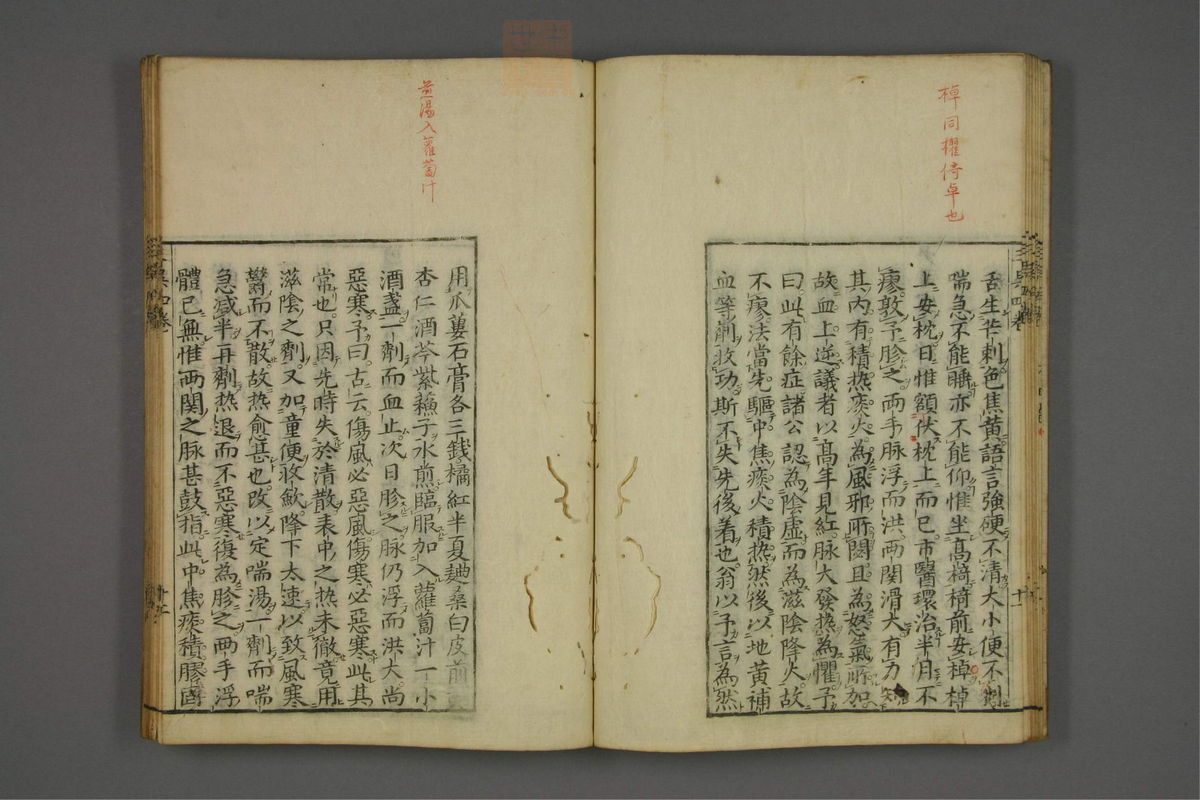 棹同櫂倚卓也
舌生芒刺色焦黄語言強硬不清大小便不利
喘急不能睡亦不能仰惟坐高椅椅前安棹棹
上安枕日惟額伏枕上而已市醫環治半月不
瘳敦予胗之兩手脉浮而洪兩関滑大有力知
其内有積热痰火為風邪所閼且為怒氣所加
故血上逆議者以高年見紅脉大發热為懼予
曰此有餘症諸公認為陰虚而為滋陰降火故
不瘳法當先驅中焦痰火積热然後以地黄補
血等劑收功斯不失先後着也翁以予言為然
湯入蘿蔔汁
用瓜蔞石膏各三錢橘紅半夏麯桑白皮前
杏仁酒芩紫蘓子水煎臨服加入蘿蔔汁一小
酒盞一劑而血止次日胗之脉仍浮而洪大尚
惡寒予曰古云傷風必惡風傷寒必惡寒此其
常也只因先時失於清散表中之热未徹竟用
滋陰之劑又加童便收歛降下太速以致風寒
欝而不散故热愈甚也改以定喘湯一劑而喘
急减半再劑热退而不惡寒復為胗之兩手浮
體已無惟兩関之脉甚鼓指此中焦痰積膠固